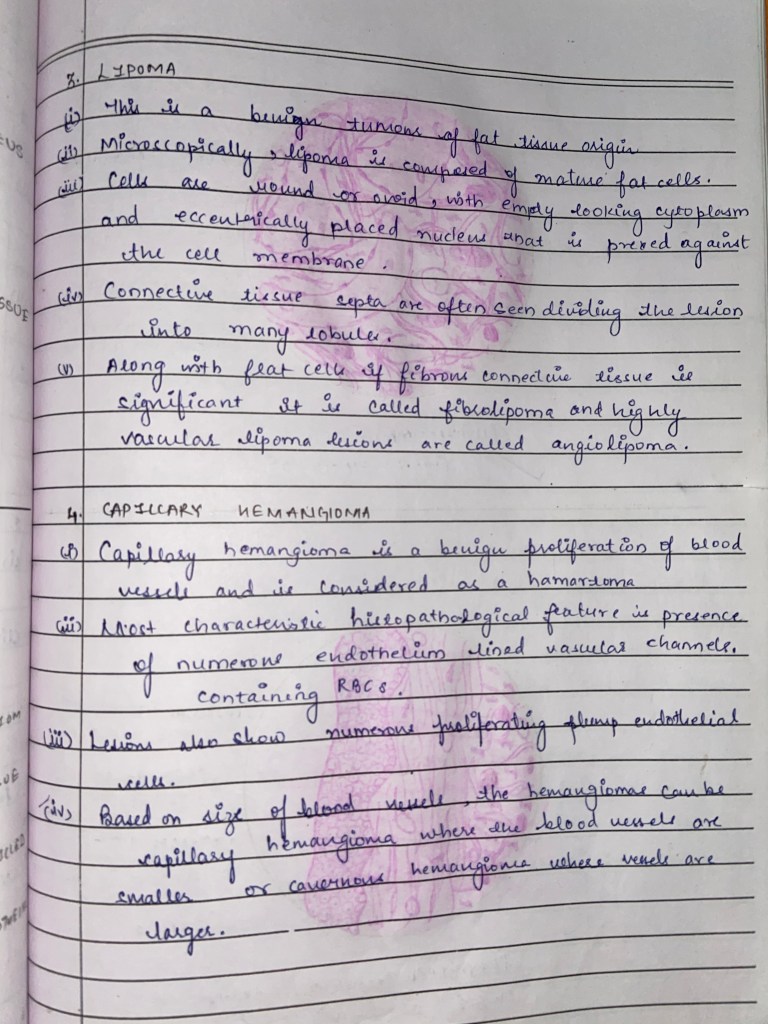 3. LIPOMA
(i) This is a benign tumons of fat tissue origin
(ii) Microscopically, lipoma is composed of mature fat cells.
(iii) Cells are round or ovoid, with empty looking cytoplasm
and eccentrically placed nucleus that is pressed against
the cell membrane.
(iv) Connective tissue septa are often seen dividing the lesion
into many lobules.
(v) Along with feat cells if fibrous connective tissue is
significant it is called fibrolipoma and highly
vascular lipoma lesions are called angiolipoma.
4. CAPILLARY HEMANGIOMA
(i) Capillary hemangioma is a benign proliferation of blood
vessels and is considered as a hamartoma
(ii) Most characteristic histopathological feature is presence
of numerous endothelium lined vascular channels.
containing RBCs.
(iii) Lesions also show numerous proliferating plump endothelial
cells.
(iv) Based on size of blood vessels, the hemangiomas can be
capillary hemangioma where the blood vessels are
smaller or cavernous hemangioma where vessels are
larger.